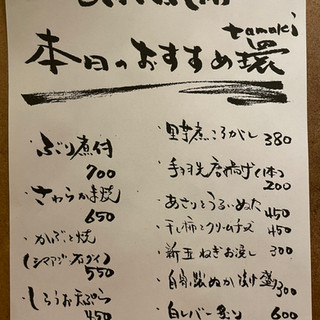 tamaki
本日のおすすめ 環
・ぶり煮付
700
・さわらかま焼
650
・かぶと焼
(シマアジ・石ダイ)
550
・しらうお天ぷら
450
・里芋煮ころがし 380
・手羽先唐揚げ(1本)
200
・あさりとうるいぬた
450
・干し柿とクリームチーズ 450
・新玉ねぎお浸し 300
・自家製ぬか漬け盛
300
・白レバー 600